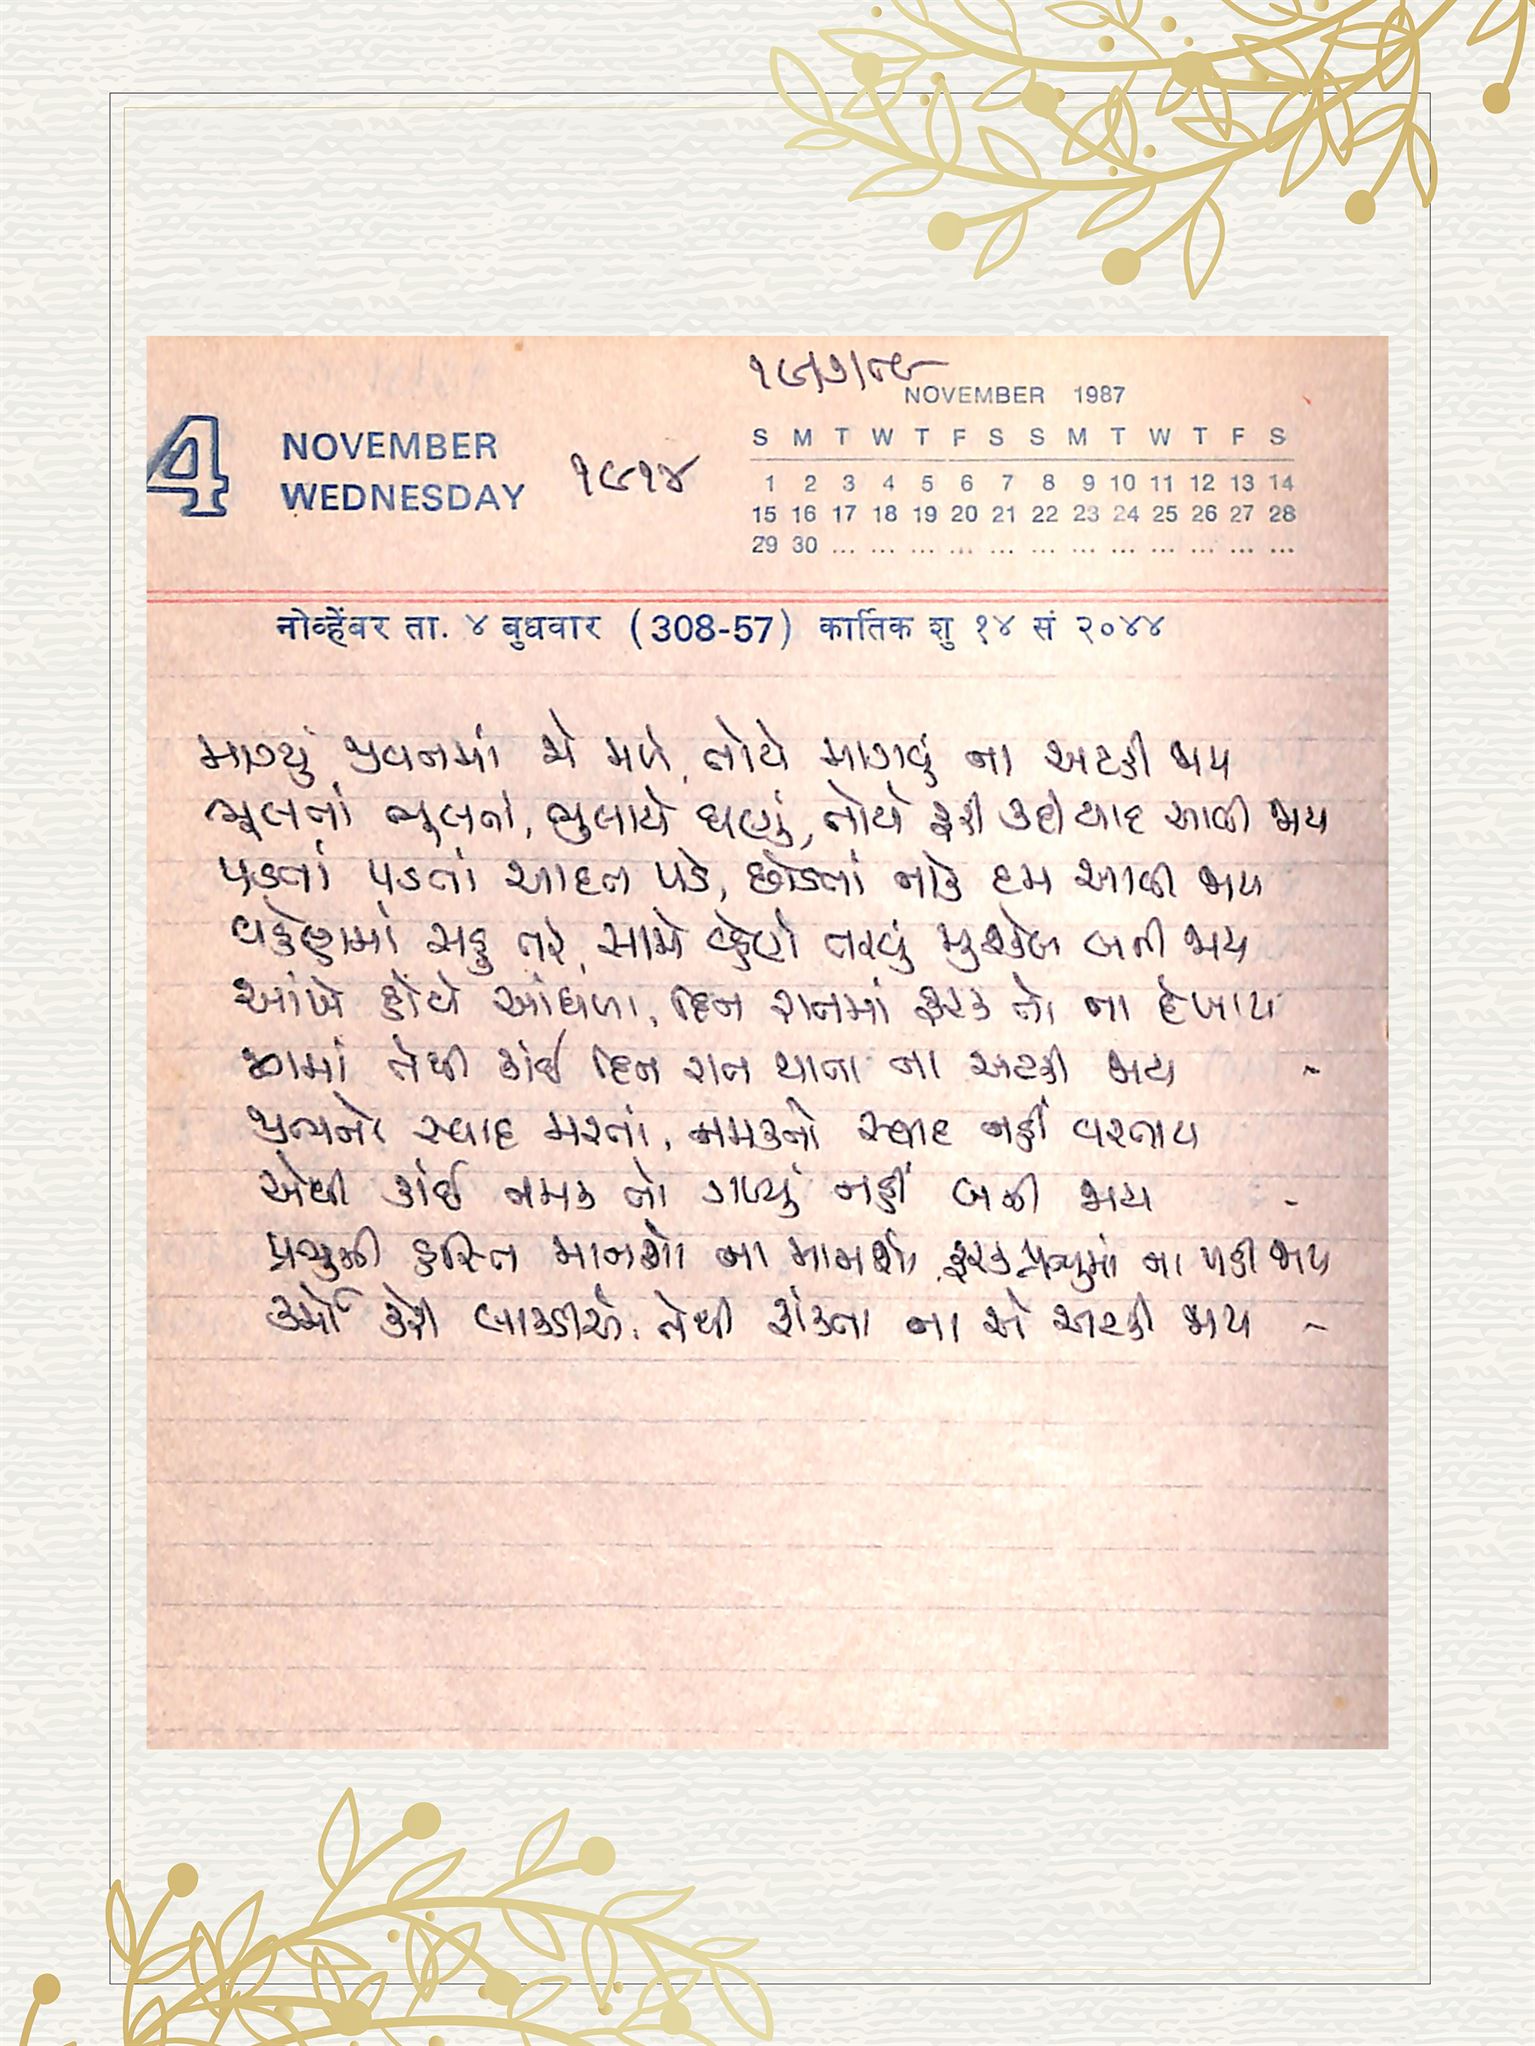 ૧૯/૭/૮૯
NOVEMBER 1987
4 NOVEMBER
WEDNESDAY
૧૯૧૪
S M T W T F S S M T W T F S
1 2 3 4 5 6 7 8 9 10 11 12 13 14
15 16 17 18 19 20 21 22 23 24 25 26 27 28
29 30 ... ... ... ... ... ... ... ... ... ... ... ...
नोव्हेंबर ता. ४ बुधवार (308-57) कार्तिक शु १४ सं २०४४
માગ્યું જીવનમાં જે મળે, તોયે માગવું ના અટકી જાય
ભૂલતાં ભૂલતાં, ભુલાયે ઘણું, તોયે ફરી કદી યાદ આવી જાય
પડતાં પડતાં આદત પડે, છોડતાં નાકે દમ આવી જાય
વહેણમાં સહુ તરે, સામે વ્હેણે તરવું મુશ્કેલ બની જાય
આંખે હોયે આંધળા, દિન રાતમાં ફરક તો ના દેખાય
જગમાં તેથી કાંઈ દિન રાત થાતા ના અટકી જાય -
જીભનો સ્વાદ મરતાં, નમકનો સ્વાદ નહીં વરતાય
એથી કાંઈ નમક તો ગળ્યું નહીં બની જાય -
પ્રભુની હસ્તિ માનશો ના માનશો, ફરક પ્રભુમાં ના પડી જાય
કર્મો કેરી લાકડીએ, તેથી હાંકતા ના એ અટકી જાય -